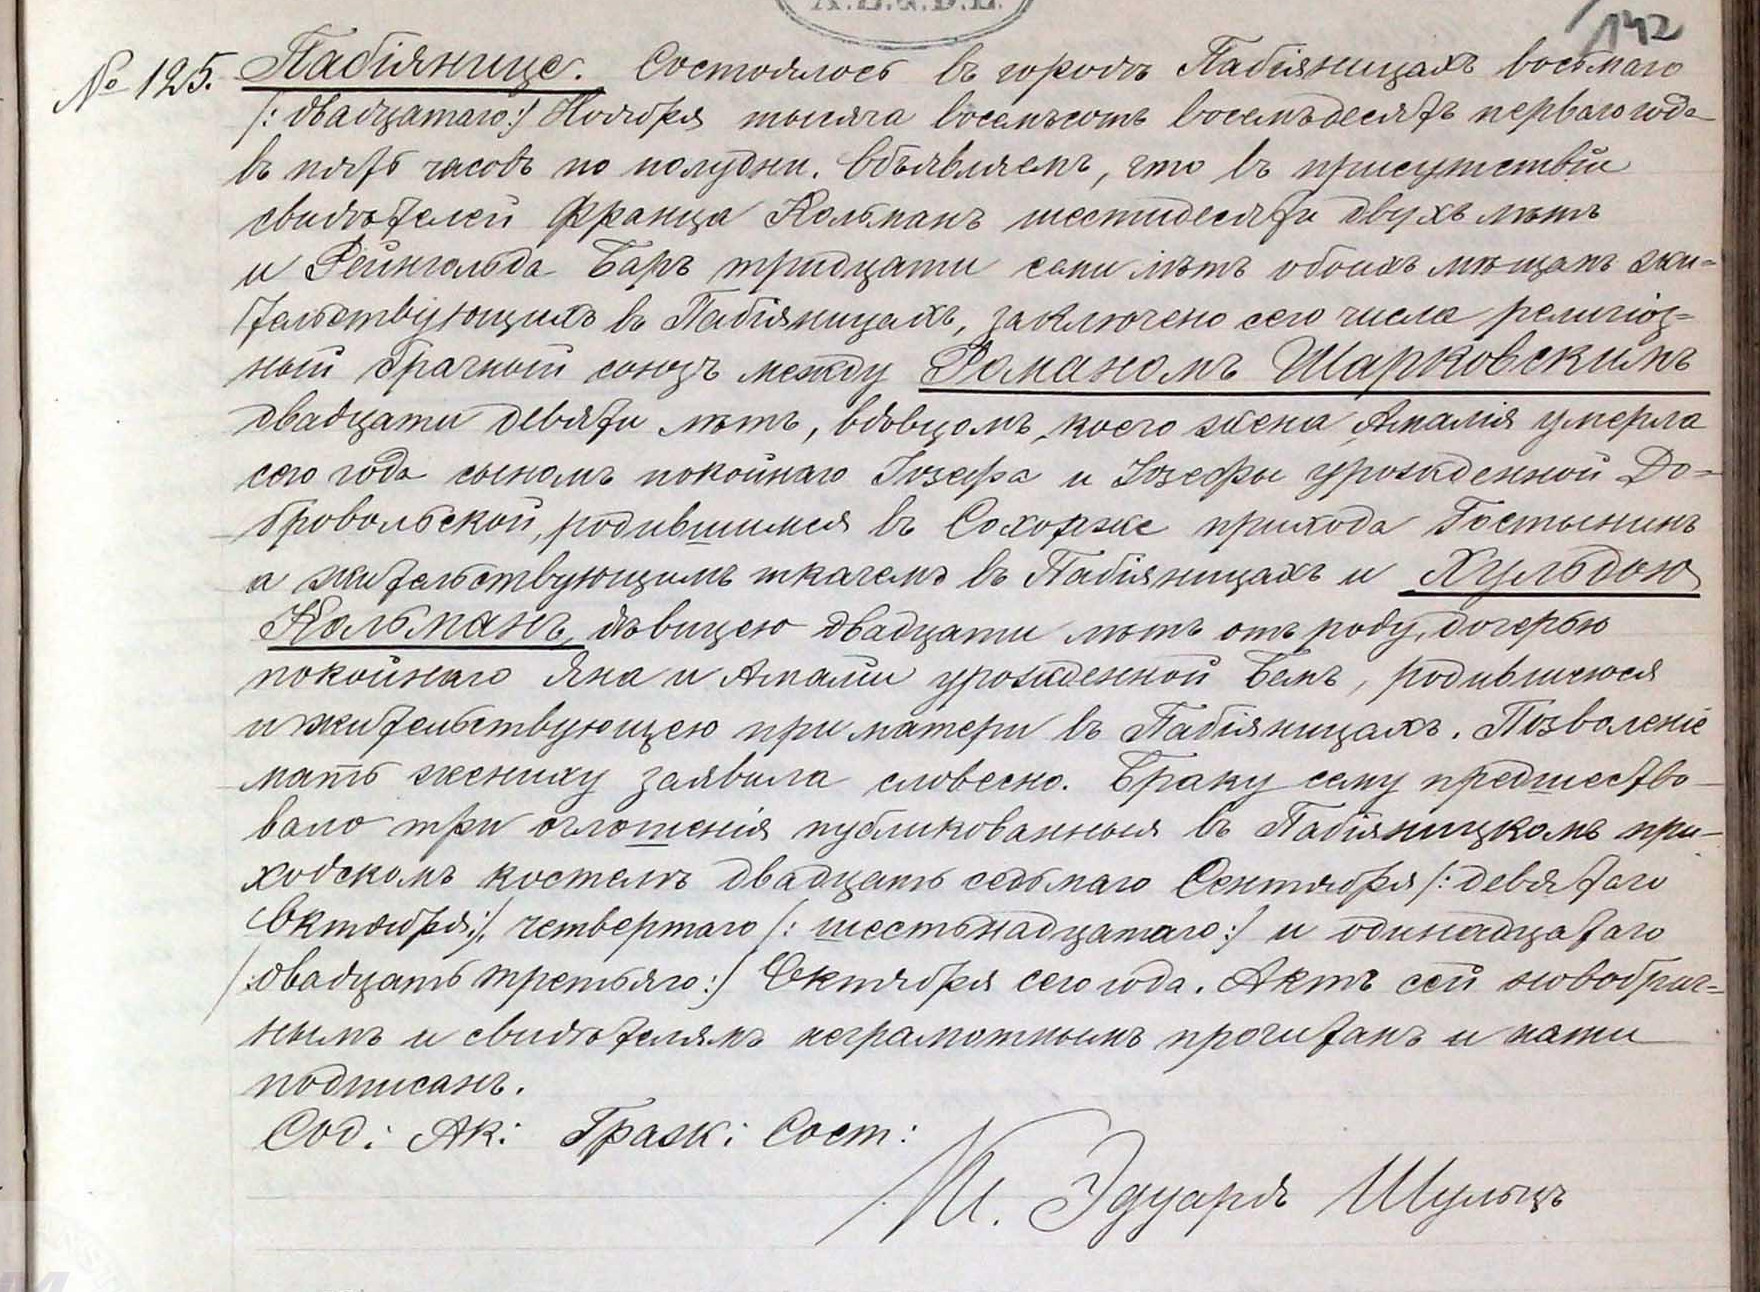 142
№ 125. Пабіянице. Состоялось въ городѣ Пабіяницахъ восьмаго
/: двадцатаго:/ Ноября тысяча восемьсотъ восемьдесятъ перваго года
въ пять часовъ по полудни. Объявляемъ, что въ присутствіи
свидѣтелей Франца Кольманъ шестидесяти двухъ лѣтъ
и Рейнгольда Баръ тридцати семи лѣтъ обоихъ мѣщанъ жи=
тельствующихъ въ Пабіяницахъ, заключено сего числа религіоз=
ный брачный союзъ между Романомъ Шарковскимъ
двадцати девяти лѣтъ, вдовцомъ, коего жена Амалія умерла
сего года сыномъ покойнаго Іозефа и Іозефы урожденной До=
бровольской, родившимся въ Сохорже прихода Гостынинъ
а жительствующимъ ткачемъ въ Пабіяницахъ и Хульдою
Кольманъ, дѣвицею двадцати лѣтъ отъ роду, дочерью
покойнаго Яна и Амаліи урожденной Бемъ, родившеюся
и жительствующею при матери въ Пабіяницахъ. Позволеніе
мать жениху заявила словесно. Браку сему предшество
вало три оглошенія публикованныя въ Пабіяницкомъ при-
ходскомъ костелѣ двадцать седьмаго Сентября /: девятаго
Октября:/, четвертаго /: шестьнадцатаго:/ и одинадцатаго
/: двадцать третьяго:/ Октября сего года. Актъ сей новобрач=
нымъ и свидѣтелямъ неграмотнымъ прочитанъ и нами
подписанъ.
Сод: Ак: Гражд: Сост:
П. Эдуардъ Шульцъ